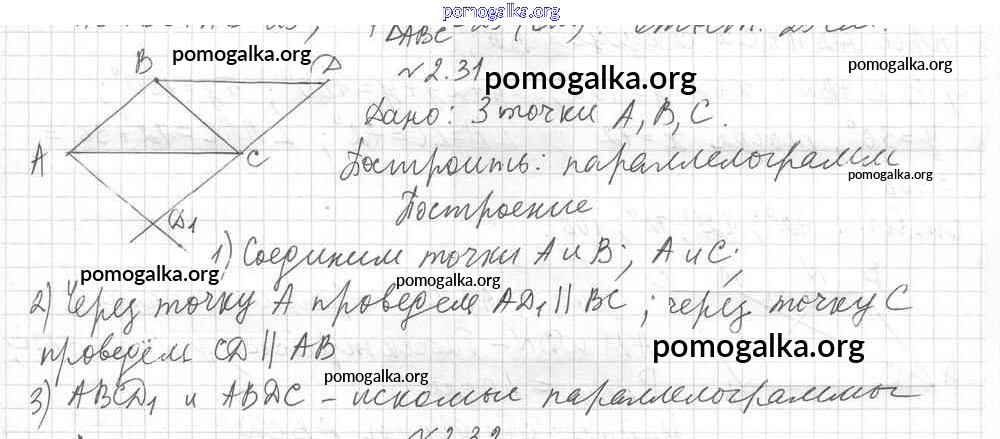 pomogalka.org
ΔABC
pomogalka.org
B
D
N 2.31
pomogalka.org
pomogalka.org
Дано: 3 точки A, B, C.
A
C
Построить: параллелограмм
pomogalka.org
Построение
D1
1) Соединим точки A и B; A и C;
pomogalka.org
pomogalka.org
2) Через точку A проведем AD1 || BC; через точку C
проведём CD || AB
pomogalka.org
pomogalka.org
3) ABCD1 и ABDC – искомые параллелограммы
N 2.32